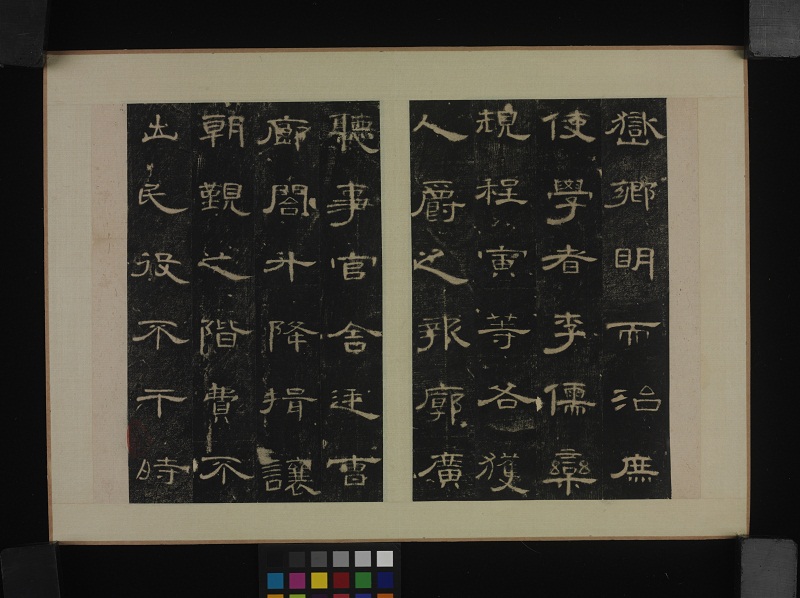 嶽鄉明而治庶
使學者李儒欒
規程寅等各獲
人爵之報廓廣
聽事官舍廷曹
廊閣升降揖讓
朝覲之階費不
出民役不干時